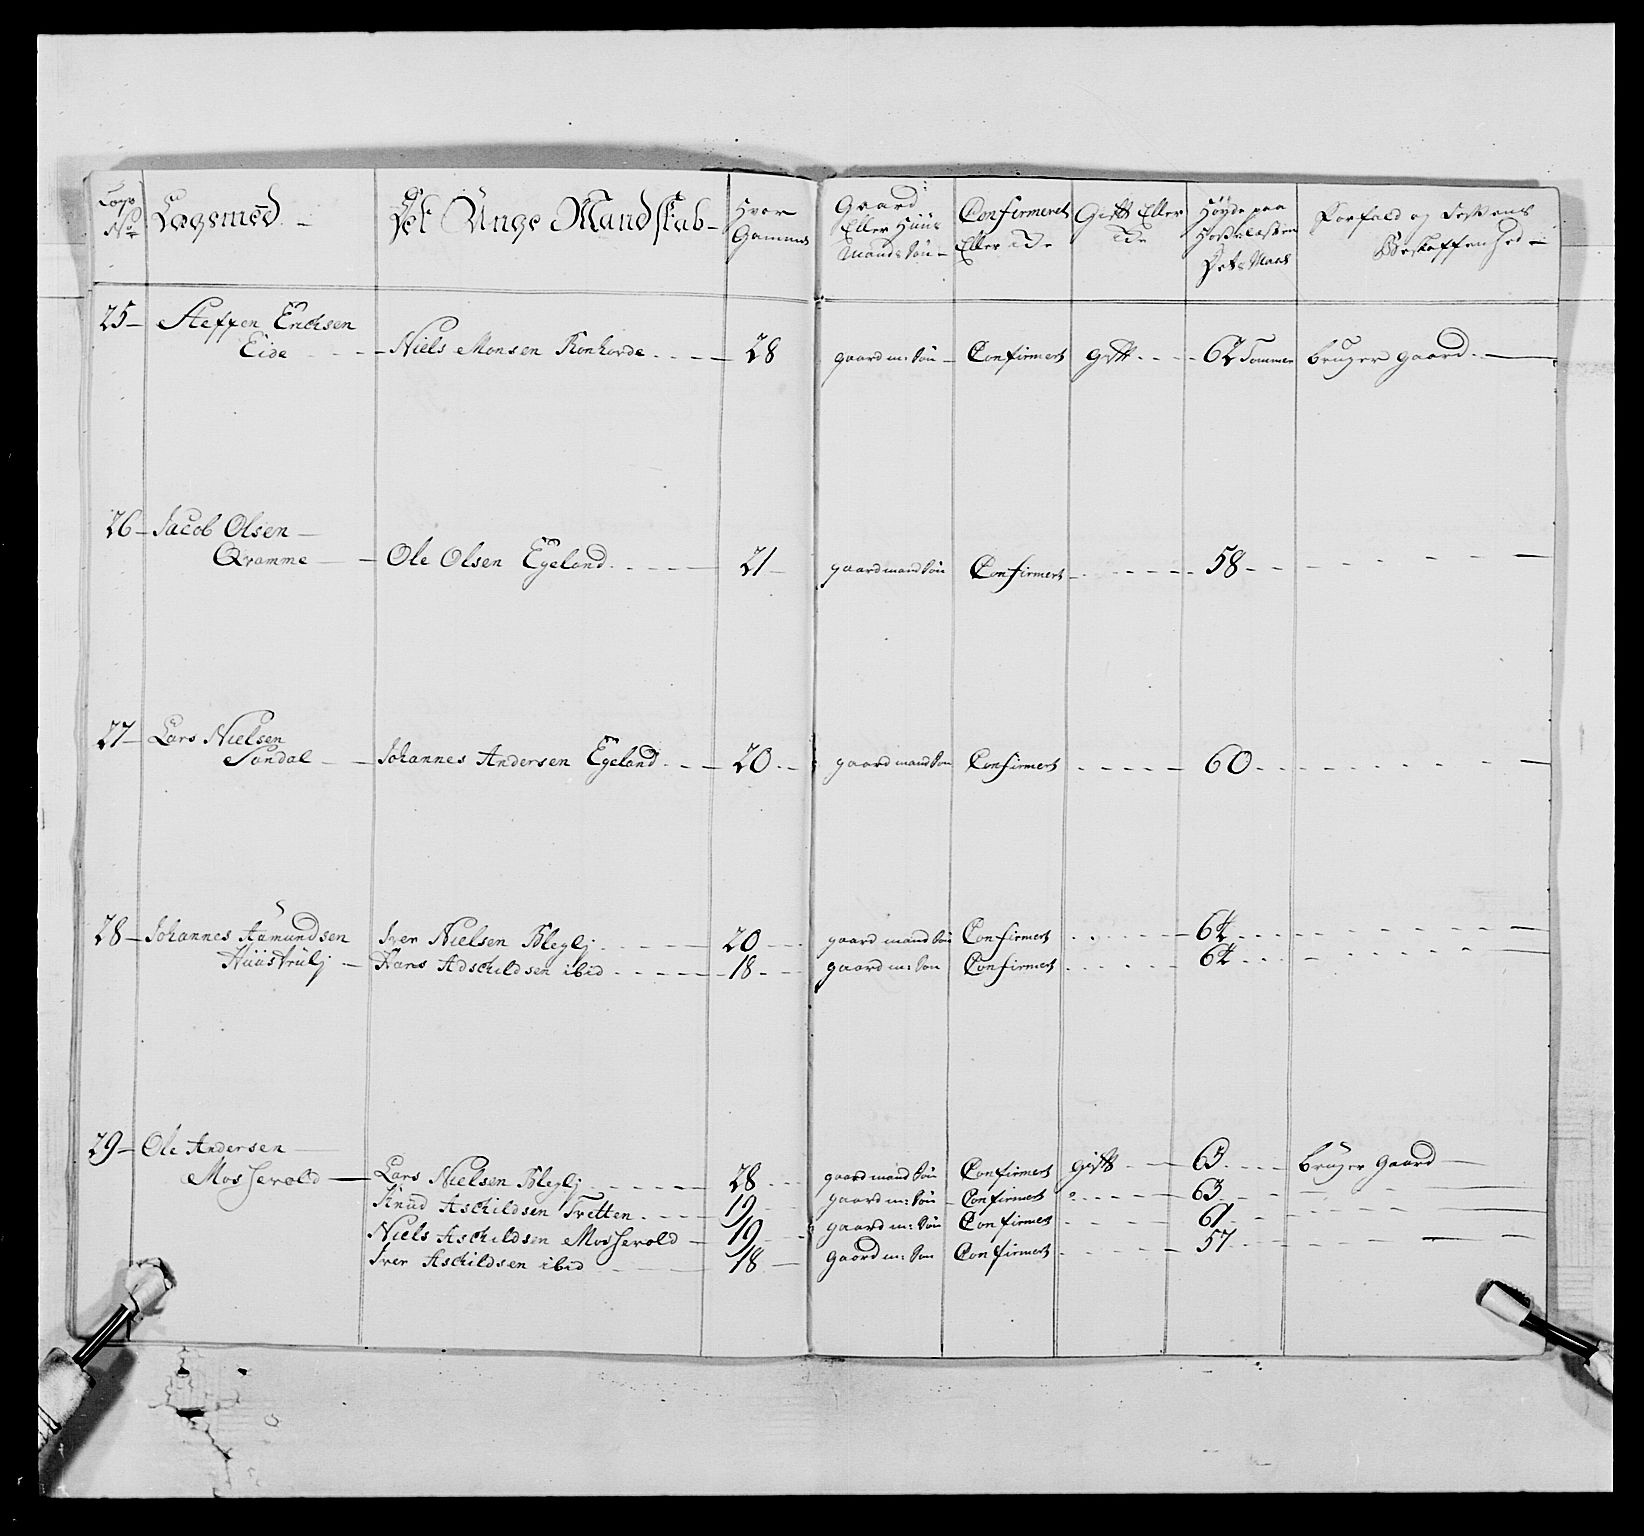 Lægs No Lægsmed. — Det Unge Mandskab — Hvor Gammel Gaard Eller Huus Mands Søn — Confirmeret Eller Ide Gift Eller Ide Høyde paa Hosselæsten Det: Maal Forfald og dessens Beskaffenhed —
25 — Steffen Erichsen
Eide - - - Niels Monsen Ronhovde. - - - 28 gaard m: Søn — Confirmert gift. - - - 62 Tommer bruger gaard. —
26 — Jacob Olsen —
Qvamme — — Ole Olsen Egeland. - - - 21 — gaardmand Søn Confirmert - - - 58 - - -
27 — Lars Nielsen
Sandal — — Johannes Andersen Egeland. - - - 20 - - gaardmand Søn Confirmert - - - 60 - - -
28 — Johannes Aamundsen Iver Nielsen Fleglj - - - 20 - - - gaard mand Søn Confirmert - - - 64 - - -
Huustrulj — Hans Adschildsen ibid - - - 18 - - gaard m: Søn Confirmert - - - 64 - - -
29 — Ole Andersen —
Mosserold — Lars Nielsen Fleglj - - - 28 - - gaardmand Søn Confirmert gift - - 63 - - - bruger Gaard —
Knud Aschildsen Tvetten. - - - 19 - - gaard m: Søn — Confirmert - - - 63 - - -
Niels Aschildsen Mosserold — 19 - - gaard m: Søn Confirmert - - - 61 - - -
Iver Aschildsen ibid - - - 18 - - gaard m: Søn Confirmert - - - 57 - - -